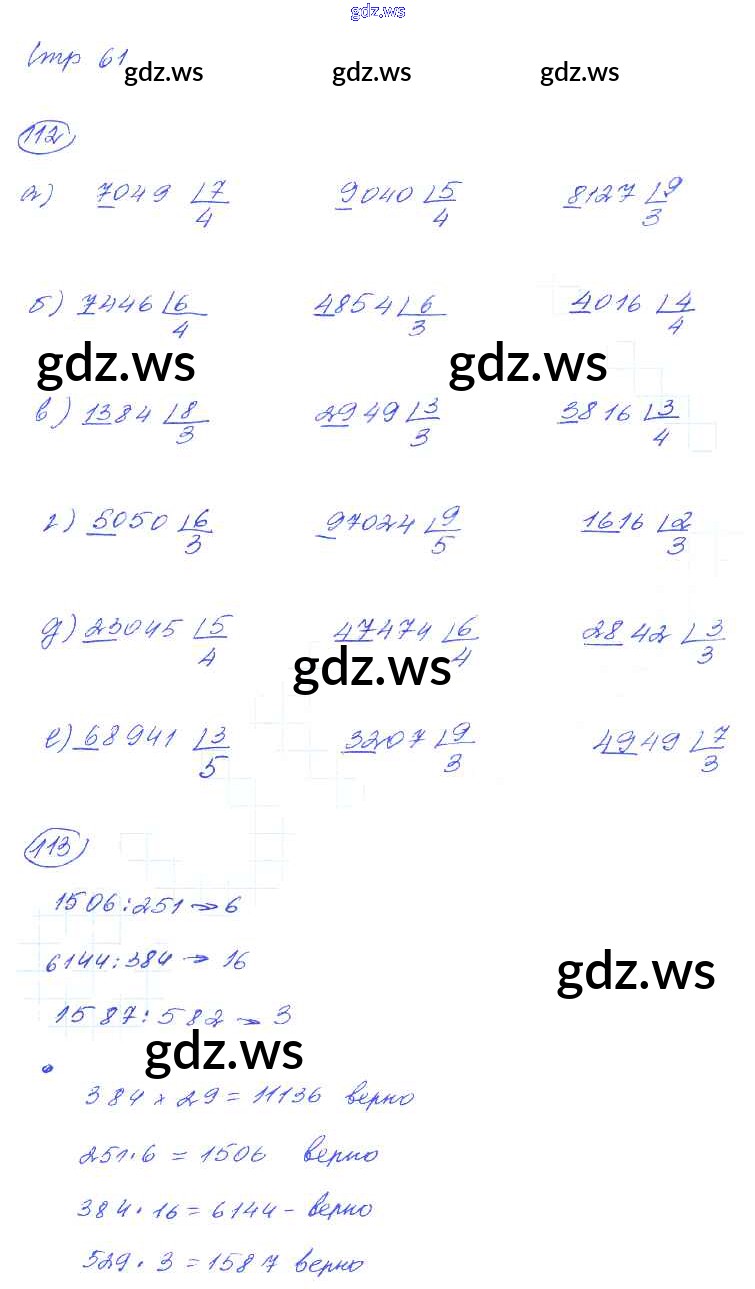 gdz.ws
Стр 61
gdz.ws gdz.ws gdz.ws
112
а) 7049 7 9040 5 8127 9
4 4 3
б) 7446 6 4854 6 4016 4
4 3 4
gdz.ws gdz.ws
в) 1384 8 2949 3 3816 3
3 3 4
г) 5050 6 97024 9 1616 2
3 5 3
д) 23045 5 47474 6 2842 3
4 4 3
gdz.ws
е) 68941 3 3207 9 4949 7
5 3 3
113
1506:251→6
6144:384→16
gdz.ws
1587:582→3
gdz.ws
384×29=11136 верно
251·6=1506 верно
384·16=6144- верно
529·3=1587 верно